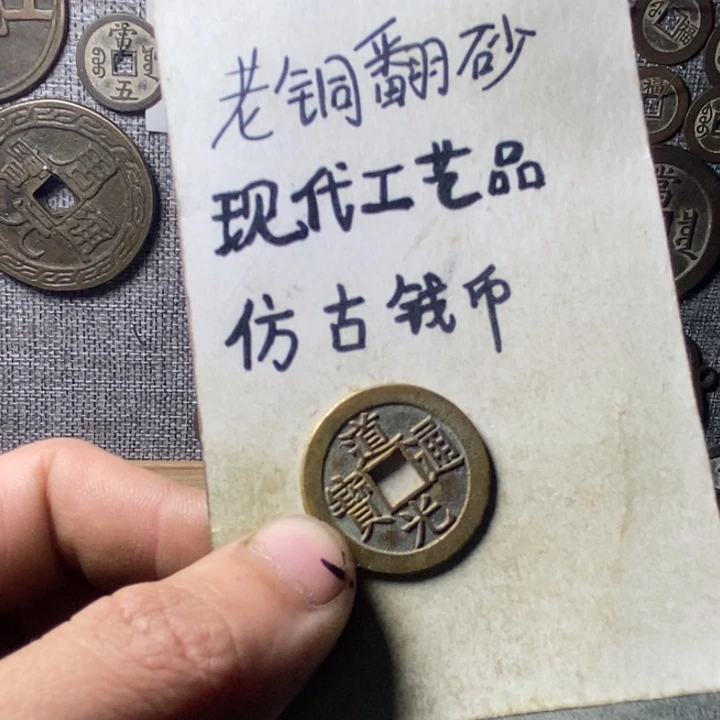 老铜翻砂
现代工艺品
仿古钱币
道光通寶
當五